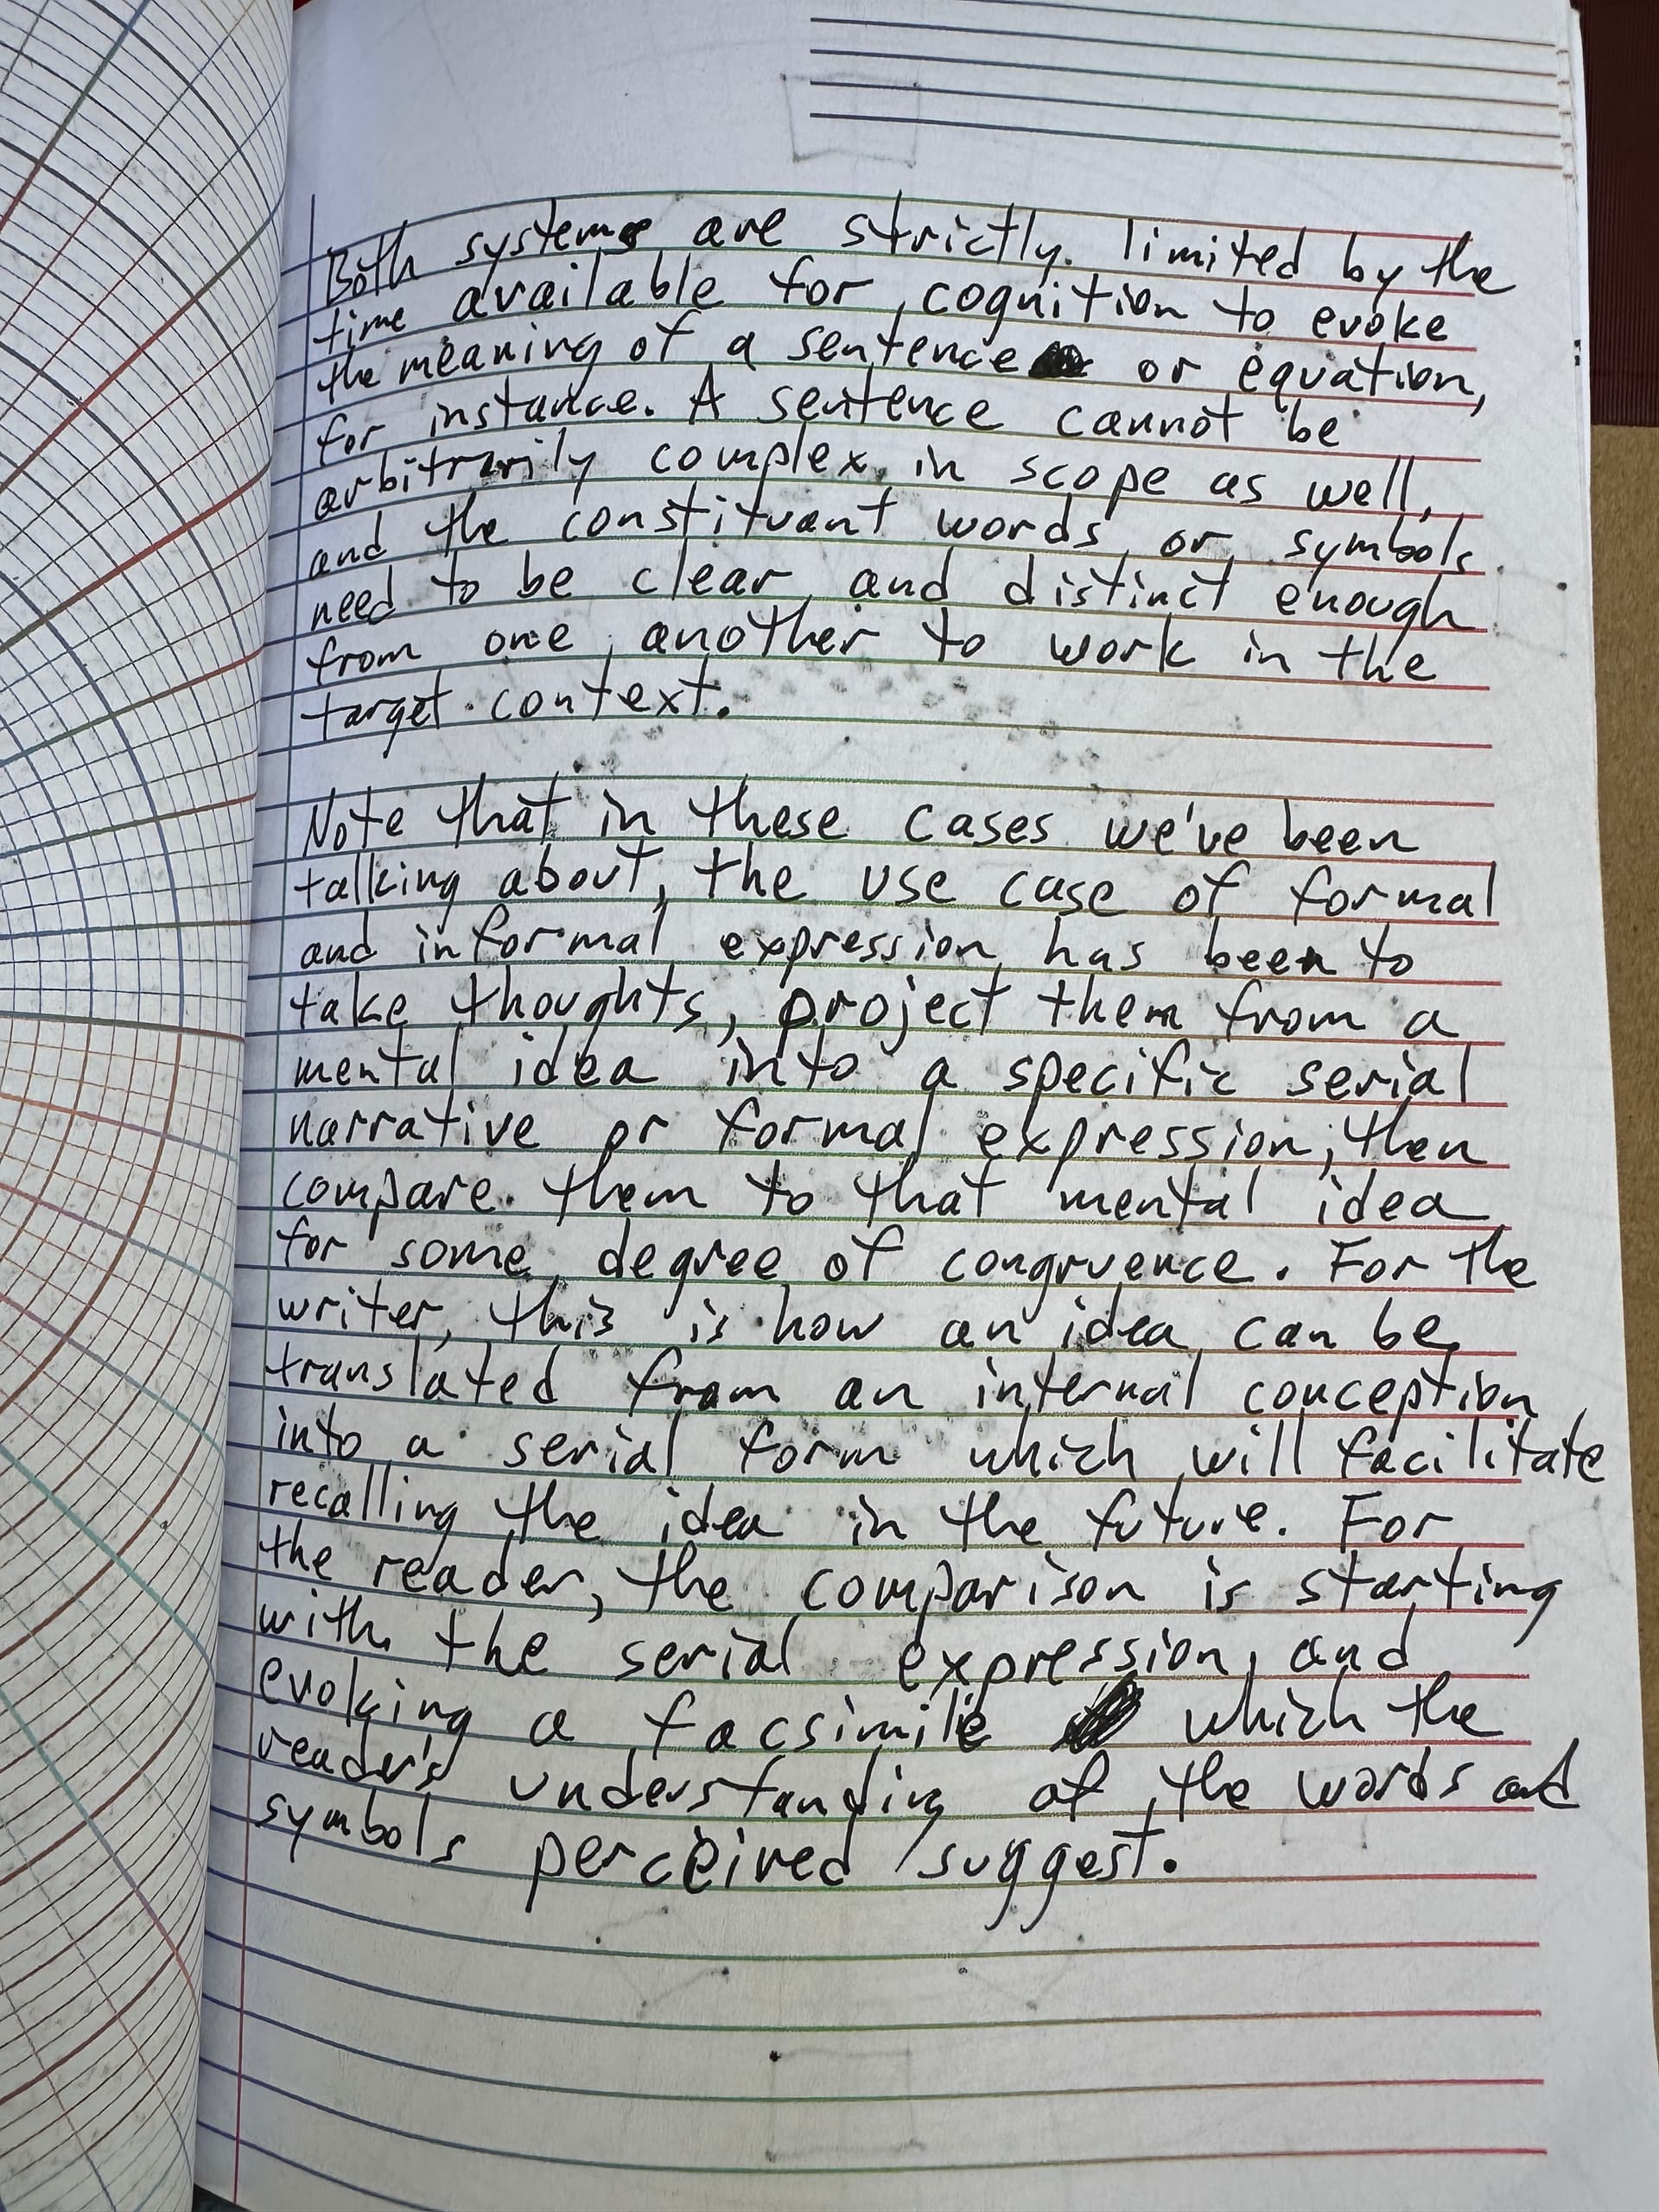 Both systems are strictly limited by the
time available for cognition to evoke
the meaning of a sentence or equation,
for instance. A sentence cannot be
arbitrarily complex in scope as well,
and the constituant words or symbols
need to be clear and distinct enough
from one another to work in the
target context.
Note that in these cases we've been
talking about, the use case of formal
and informal expression has been to
take thoughts, project them from a
mental idea into a specific serial
narrative or formal expression, then
compare them to that mental idea
for some degree of congruence. For the
writer, this is how an idea can be
translated from an internal conception
into a serial form which will facilitate
recalling the idea in the future. For
the reader, the comparison is starting
with the serial expression, and
evoking a facsimile which the
reader's understanding of the words and
symbols perceived suggest.